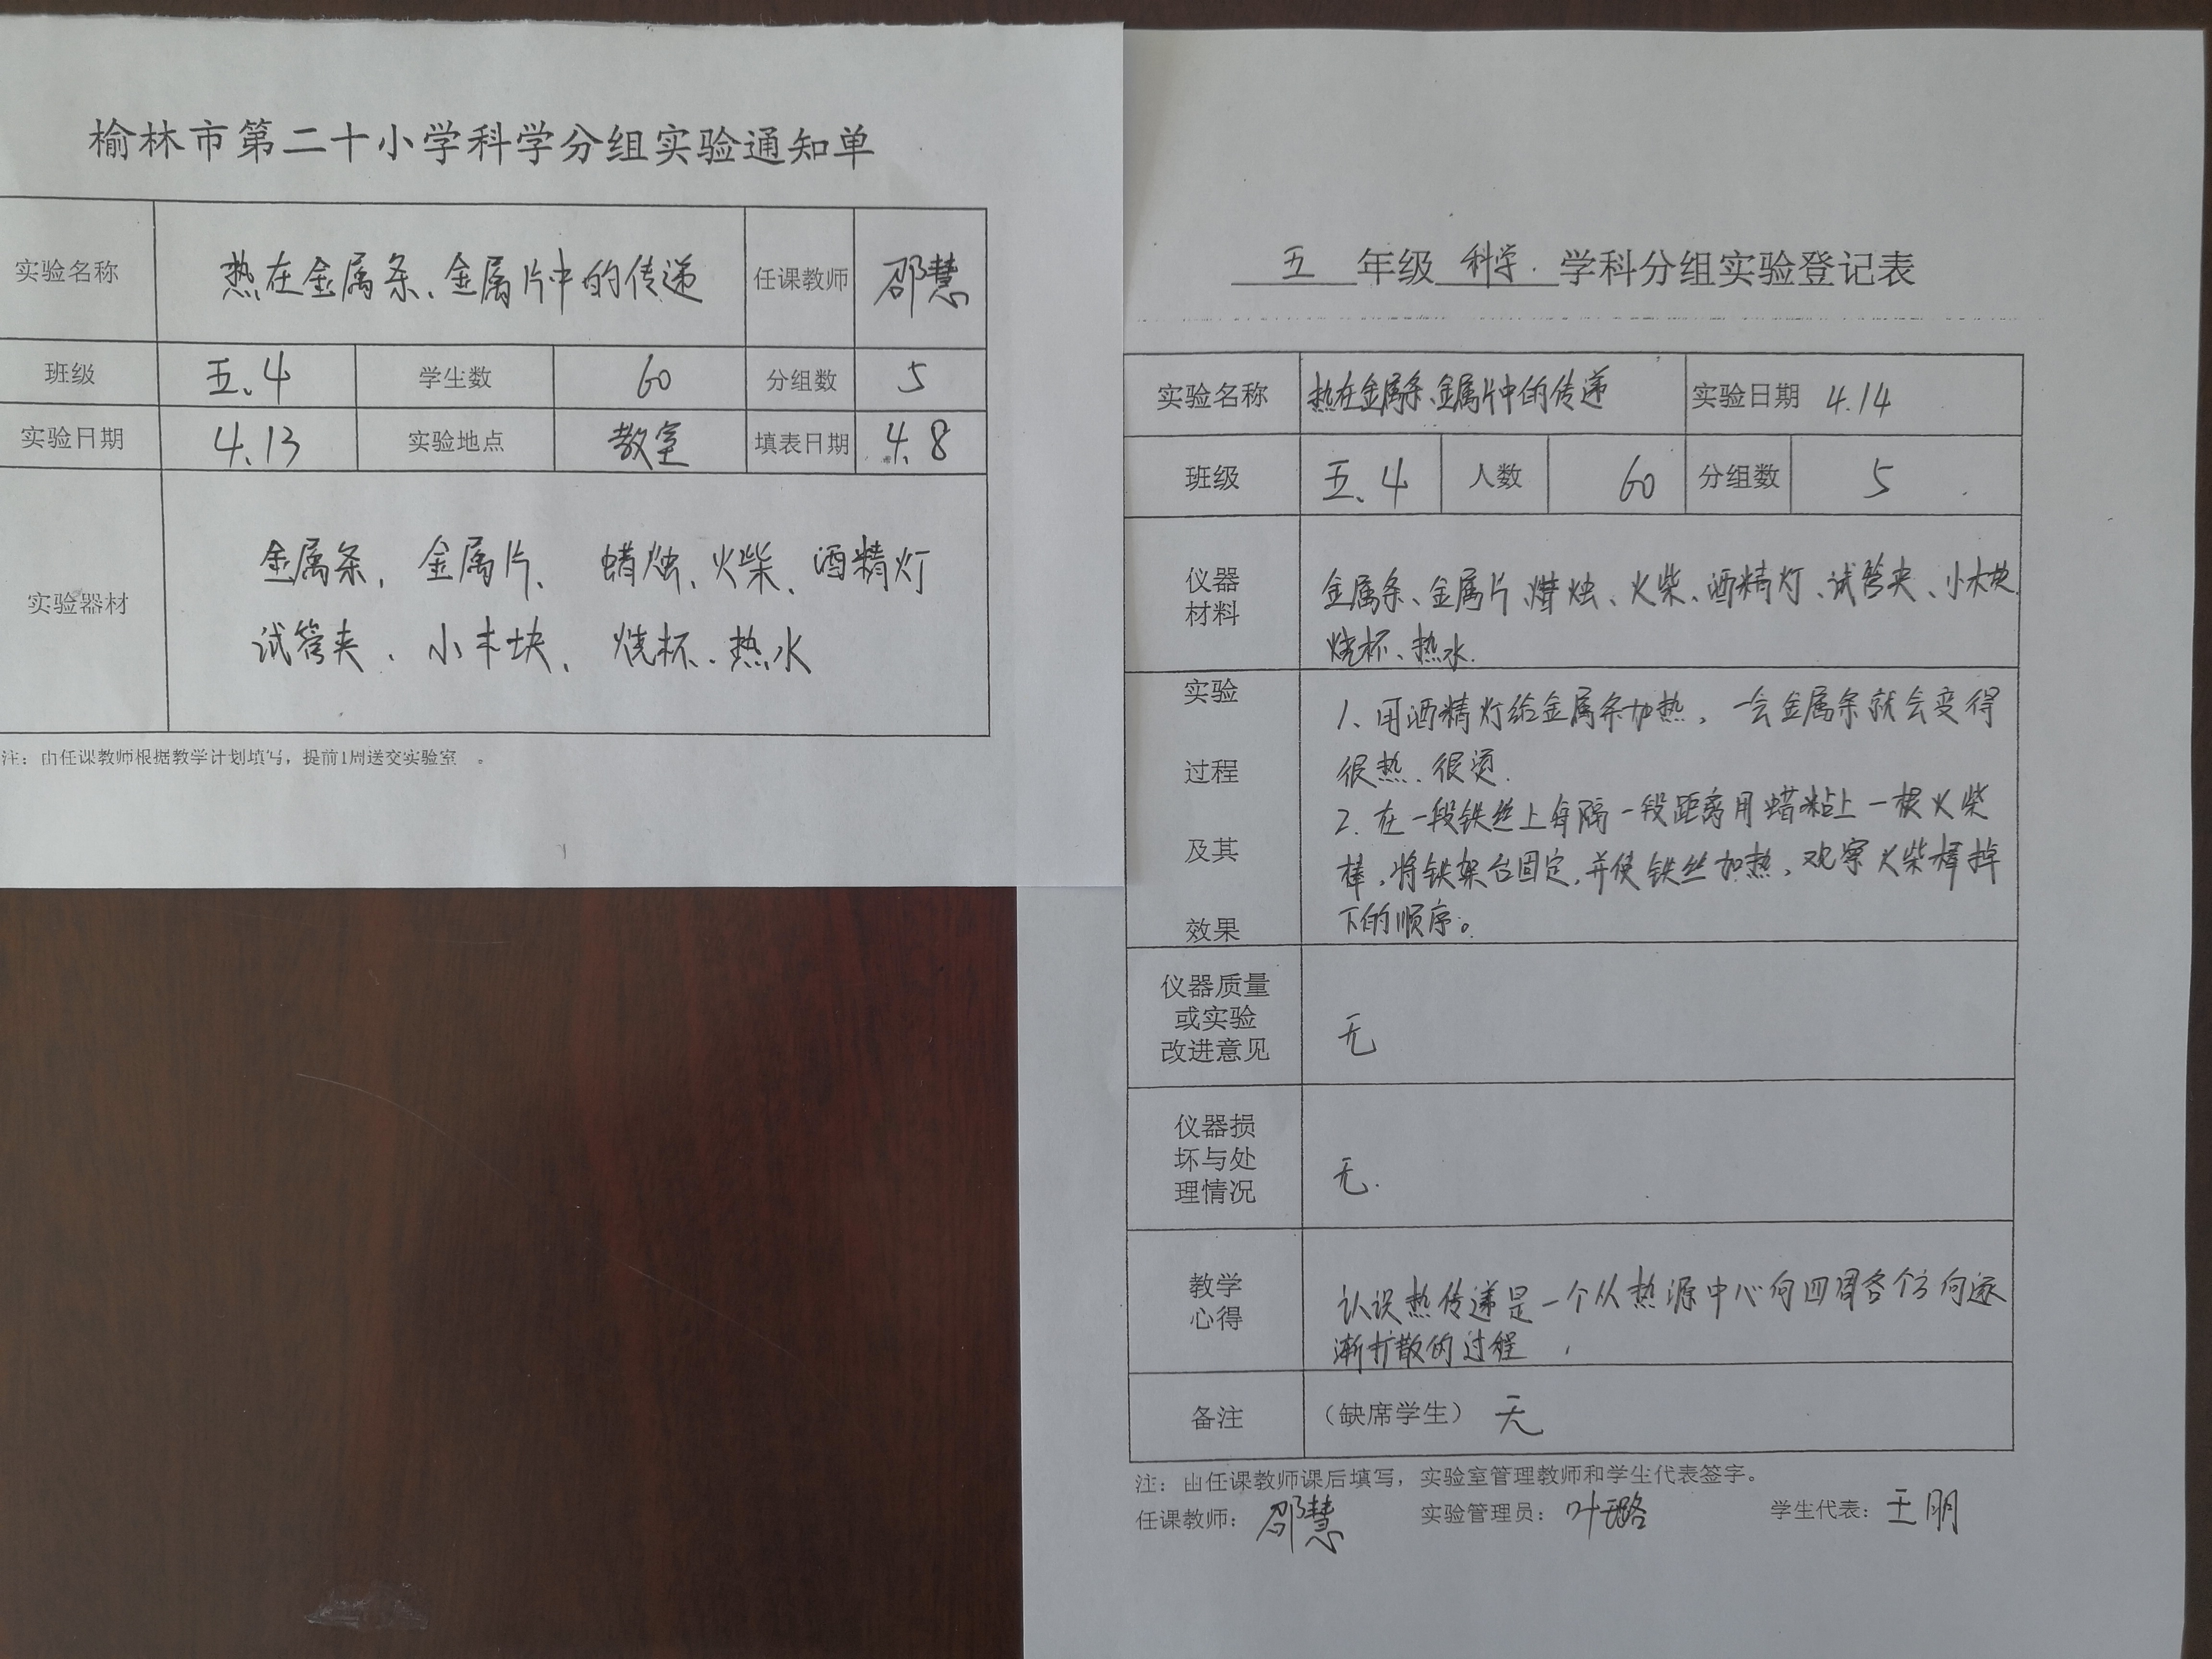 榆林市第二十小学科学分组实验通知单
实验名称 热在金属条、金属片中的传递 任课教师 邵慧
班级 五.4 学生数 60 分组数 5
实验日期 4.13 实验地点 教室 填表日期 4.8
实验器材
金属条、金属片、蜡烛、火柴、酒精灯
试管夹、小木块、烧杯、热水
注：由任课教师根据教学计划填写，提前1周送交实验室。
五年级科学学科分组实验登记表
实验名称 热在金属条、金属片中的传递 实验日期 4.14
班级 五.4 人数 60 分组数 5
仪器
材料
金属条、金属片、蜡烛、火柴、酒精灯、试管夹、小木块
烧杯、热水.
实验
过程
及其
效果
1、用酒精灯给金属条加热，一会金属条就会变得
很热.很烫.
2.在一段铁丝上每隔一段距离用蜡粘上一根火柴
棒，将铁架台固定，并使铁丝加热，观察火柴棒掉
下的顺序。
仪器质量
或实验
改进意见
无
仪器损
坏与处
理情况
无.
教学
心得
认识热传递是一个从热源中心向四周各个方向逐
渐扩散的过程.
备注 （缺席学生） 无
注：由任课教师课后填写，实验室管理教师和学生代表签字。
任课教师：邵慧 实验管理员：叶璐 学生代表：王明